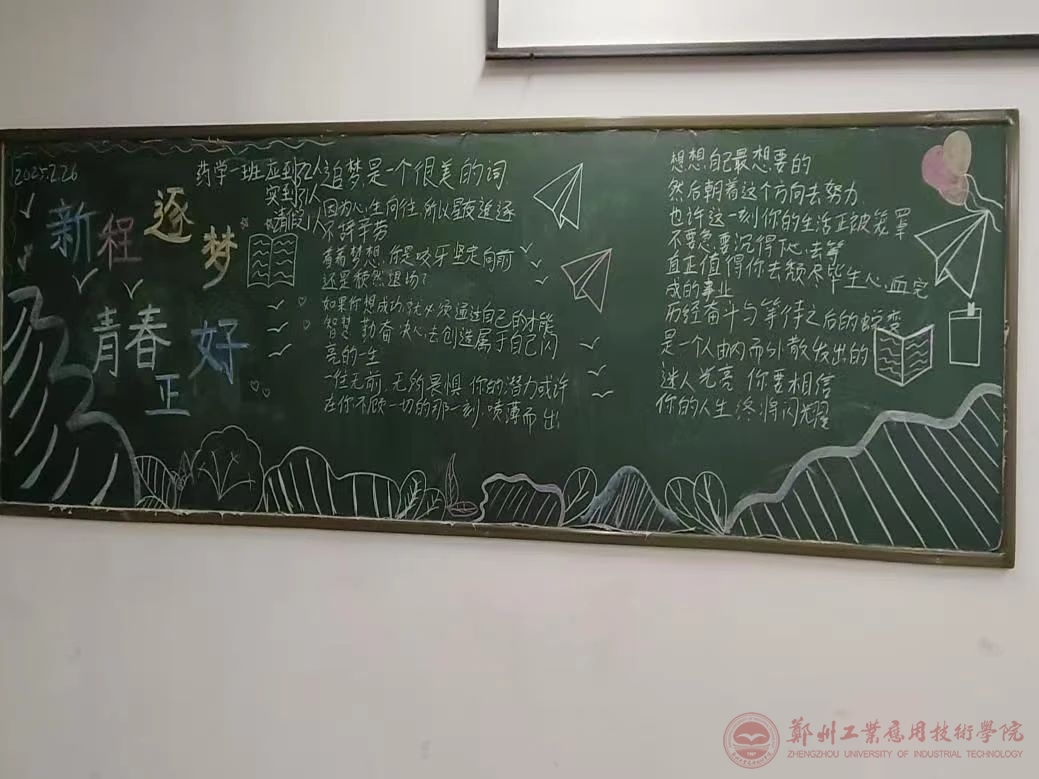 2025.2.26
新程逐梦
青春正好
药学一班应到72人
实到71人
请假1人
追梦,是一个很美的词
因为心生向往,所以星夜追逐
不辞辛劳
看着梦想,你是咬牙坚定向前
还是颓然退场?
如果你想成功,就必须通过自己的才能
如梦、勤奋、决心去创造属于自己闪
亮的一生
一往无前、无所畏惧,你的潜力或许
在你不顾一切的那一刻,喷薄而出
想想,自己最想要的
然后朝着这个方向去努力
也许这一刻,你的生活正被笼罩
不要急,要沉得下心去等
真正值得你去
毕生心血完
成的事业
历经奋斗与等待之后的蜕变
是一个人由内而外散发出的
迷人光亮,你要相信
你的人生终将闪耀
鄭州工業應用技術學院
ZHENGZHOU UNIVERSITY OF INDUSTRIAL TECHNOLOGY